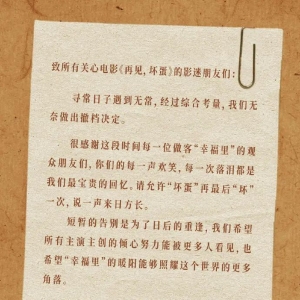 致所有关心电影《再见，坏蛋》的影迷朋友们：
寻常日子遇到无常，经过综合考量，我们无
奈做出撤档决定。
很感谢这段时间每一位做客“幸福里”的观
众朋友们，你们的每一声欢笑，每一次落泪都是
我们最宝贵的回忆。请允许“坏蛋”再最后“坏”
一次，说一声来日方长。
短暂的告别是为了日后的重逢，我们希望
所有主演主创的倾心努力能被更多人看见，也
希望“幸福里”的暖阳能够照耀这个世界的更多
角落。